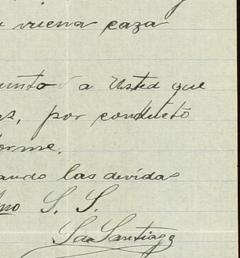 vuena caza
unto a Usted que
as, por conducto
orme.
ando las devidas
mo S. S.
Santiago